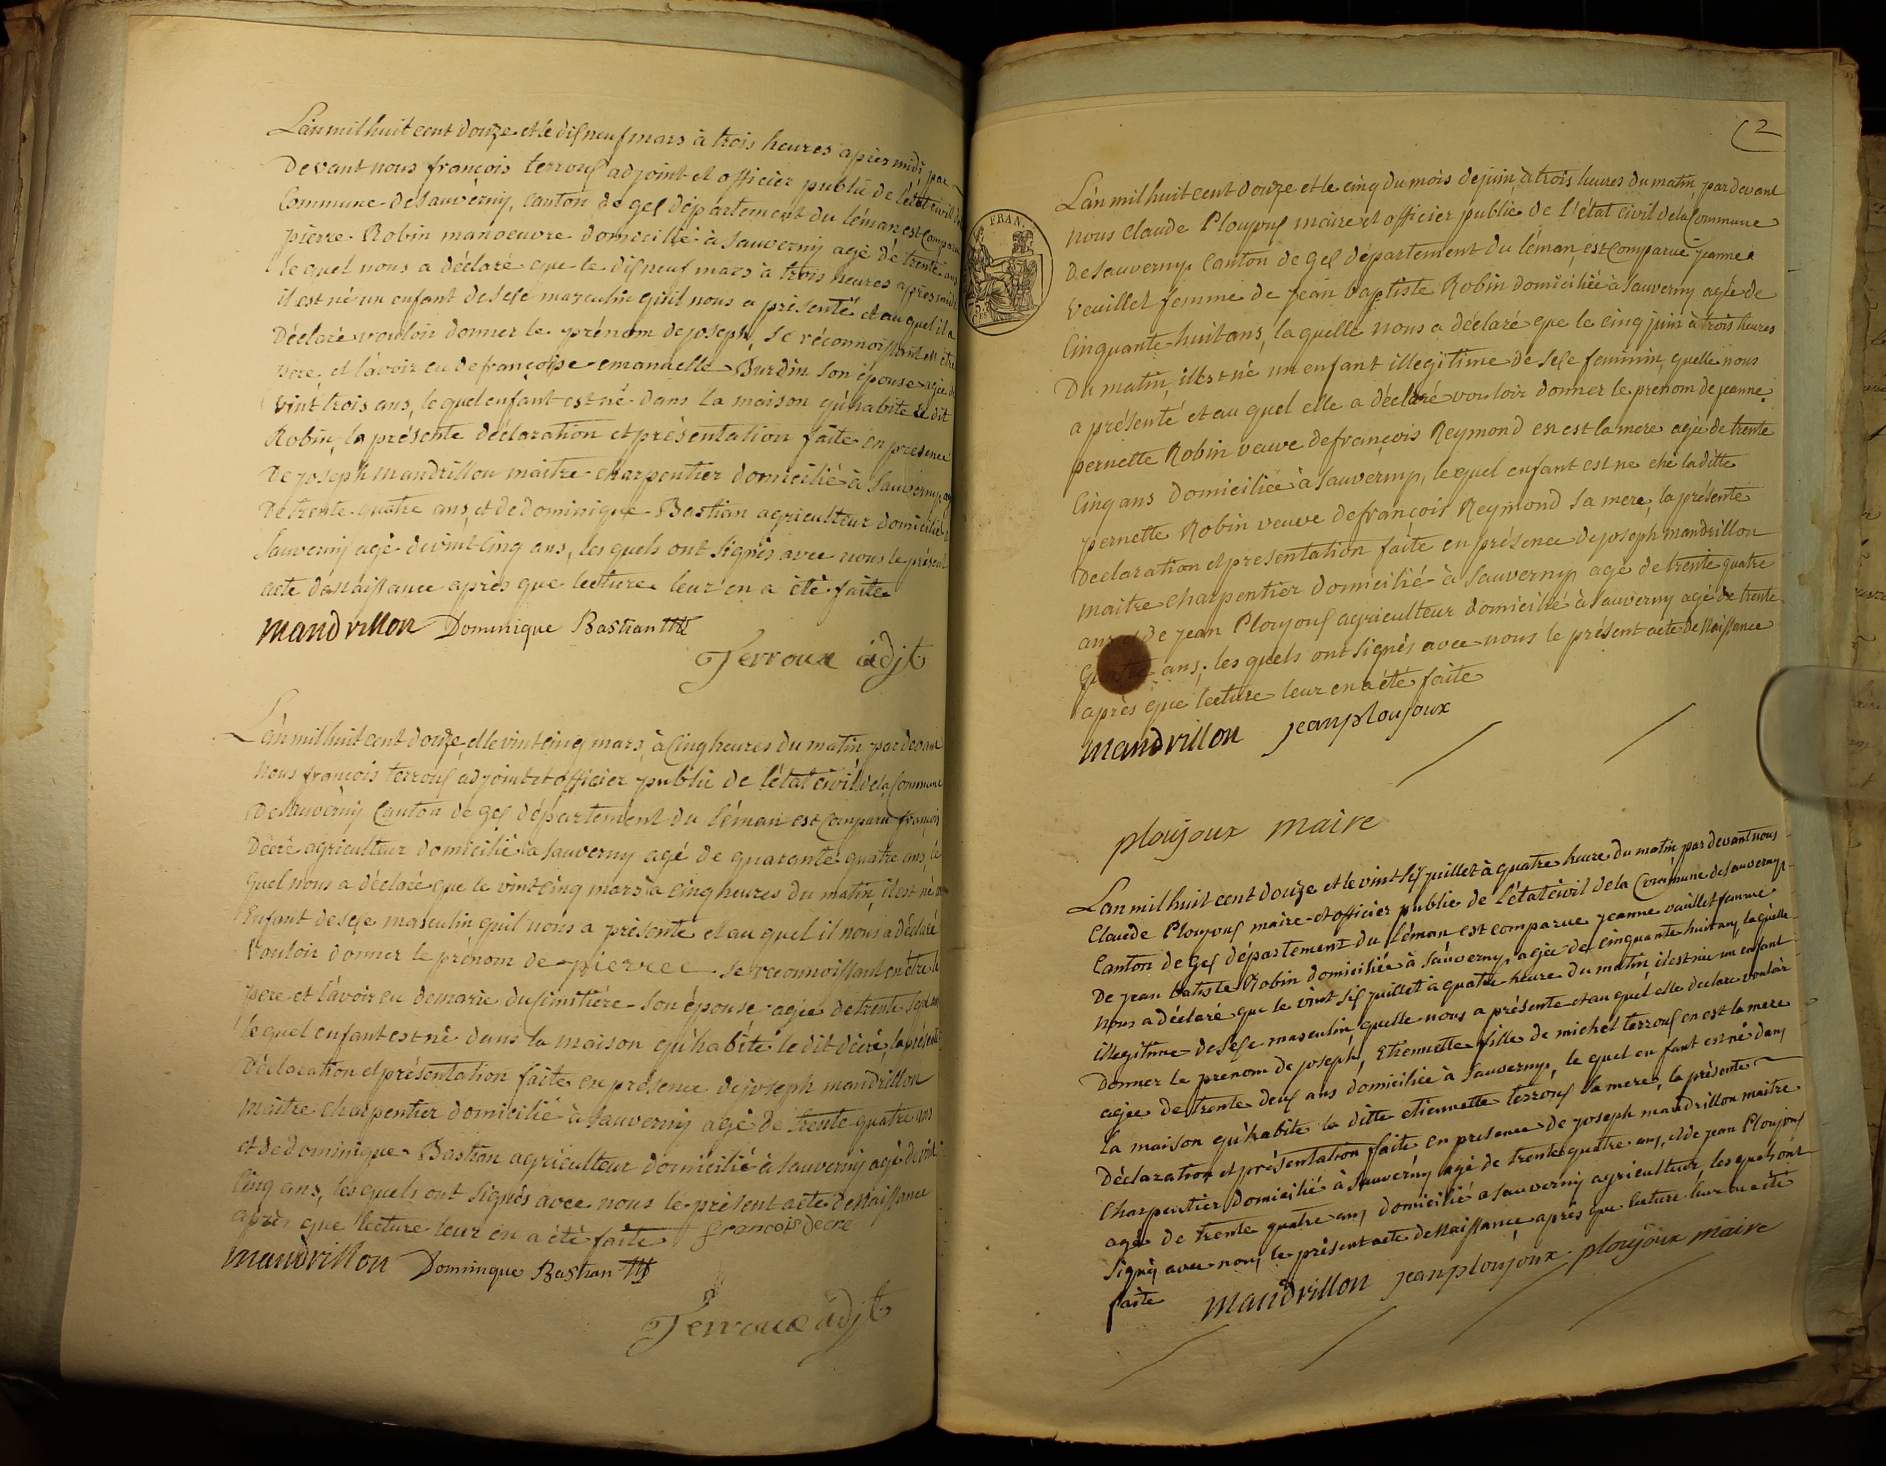 L'an mil huit cent douze et le disneuf mars à trois heures après midi, par
devant nous françois terroux adjoint et officier public de l'état civil de la
Commune de Sauverny, Canton de gex département du léman est Comparu
pierre Robin manoeuvre domicilié à Sauverny agé de trente ans
le quel nous a déclaré que le disneuf mars à trois heures apres midi
il est né un enfant de sexe masculin qu'il nous a présenté et au quel il a
Déclaré vouloir donner le prénom de joseph, se réconnoissant en être
pere, et l'avoir eu de françoise emanuelle Burdin son épouse agée de
vint trois ans, le quel enfant est né dans la maison qu'habite le dit
Robin, la présente déclaration et présentation faite en présence
de joseph mandrillon maitre charpentier domicilié à Sauverny agé
de trente quatre ans, et de dominique Bastian agriculteur domicilié à
Sauverny agé de vint cinq ans, les quels ont signés avec nous le présent
acte de Naissance après que lecture leur en a été faite
mandrillon Dominique Bastian
Terroux adjt
L'an mil huit cent douze et le vint cinq mars, à Cinq heures du matin par devant
Nous françois terroux adjoint et officier public de l'état civil de la Commune
de Sauverny Canton de gex département du léman est Comparu françois
Décré agriculteur domicilié à Sauverny agé de quarante quatre ans, le
quel nous a déclaré que le vint cinq mars à cinq heures du matin, il est né un
Enfant de sexe masculin qu'il nous a présenté et au quel il nous a déclaré
Vouloir donner le prénom de pierre se reconnoissant en être le
pere et l'avoir eu de marie du Simitiére son épouse agée de trente sept ans
le quel enfant est né dans la maison qu'habite le dit décré, la présente
Déclaration et présentation faite en présence de joseph mandrillon
maître charpentier domicilié à Sauverny agé de trente quatre ans
et de dominique Bastian agriculteur domicilié à Sauverny agé de vint
Cinq ans, les quels ont signés avec nous le présent acte de Naissance
après que lecture leur en a été faite francois decre
mandrillon Dominique Bastian
Terroux adjt
2
FRAN.
L'an mil huit cent douze et le cinq du mois de juin, à trois heures du matin, par devant
nous Claude Ploujoux maire et officier public de l'état civil de la Commune
de Sauverny Canton de gex département du léman, est Comparue jeanne
Veuillet femme de jean baptiste Robin domiciliée à Sauverny agée de
Cinquante-huit ans, la quelle nous a déclaré que le cinq juin à trois heures
Du matin, il est né un enfant illegitime de sexe feminin, quelle nous
a présenté et au quel elle a déclaré vouloir donner le prenom de jeanne.
pernette Robin veuve de françois Reymond en est la mere agée de trente
Cinq ans domiciliée à Sauverny, le quel enfant est né ché la ditte
pernette Robin veuve de françois Reymond sa mere, la présente
Declaration et presentation faite en présence de joseph mandrillon
maitre charpentier domicilié à Sauverny agé de trente quatre
ans et de jean Ploujoux agriculteur domicilié à Sauverny agé de trente
quatre ans, les quels ont signés avec nous le présent acte de Naissance
après que lecture leur en a été faite
mandrillon jean ploujoux
ploujoux maire
L'an mil huit cent douze et le vint six juillet à quatre heure du matin par devant nous
Claude Ploujoux maire et officier public de l'état civil de la Commune de Sauverny
Canton de Gex département du léman est comparue jeanne vuillet femme
De jean batiste Robin domiciliée à Sauverny, agée de cinquante huit ans, la quelle
nous a déclaré que le vint six juillet à quatre heure du matin, il est né un enfant
illegitime de sexe masculin, quelle nous a présenté et au quel elle declare vouloir
donner le prenom de joseph, Etiennette fille de michel terroux en est la mere
agée de trente deux ans domiciliée à Sauverny, le quel enfant est né dans
la maison qu'habite la ditte etiennette terroux sa mere, la présente
Déclaration et présentation faite en presence de joseph mandrillon maitre
Charpentier domicilié à Sauverny agé de trente quatre ans, et de jean Ploujoux
agé de trente quatre ans domicilié a sauverny agriculteur, les quels ont
signés avec nous le présent acte de Naissance après que lecture leur en a été
faite mandrillon jean ploujoux ploujoux maire